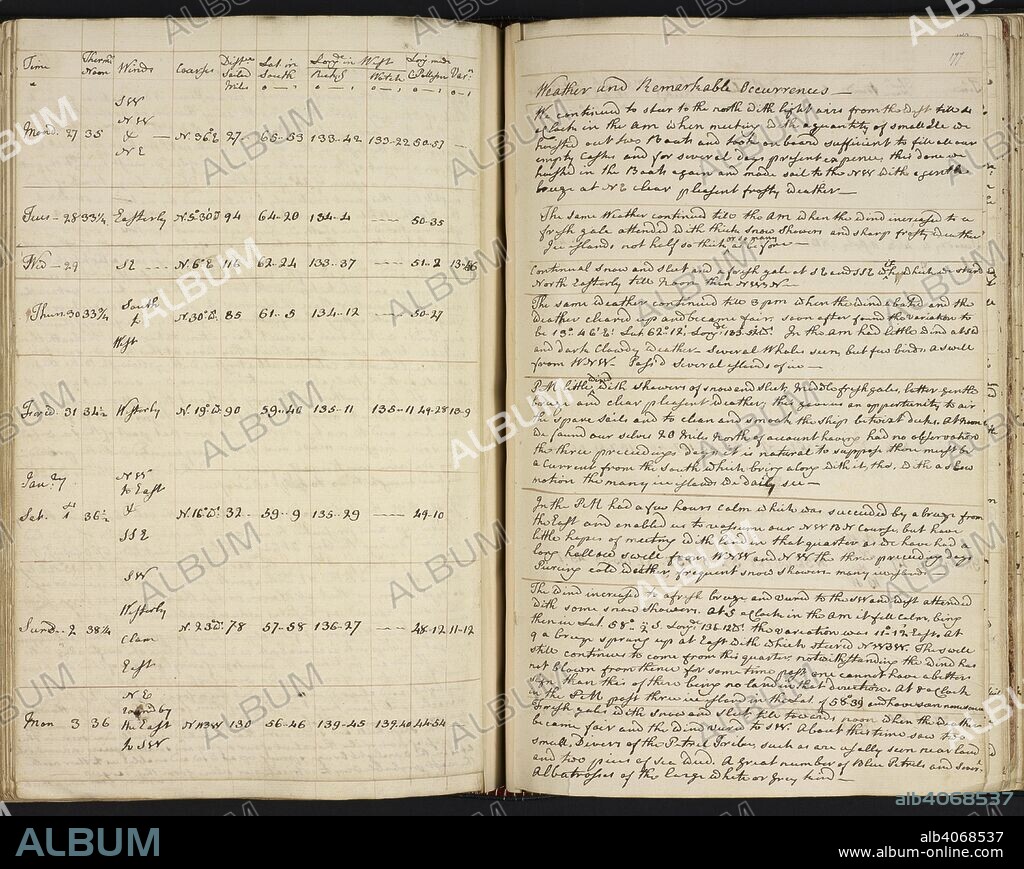 Time
Therm.r Noon
Winds
Courses
Dist.ce Sailed Miles
Lat in South
Long.de in West
Reck.g
Watch
Long. made
C. Pallisser
Var.n
Mond. 27 35 SW NW & NE N 36° E 27 65-53 133-42 133-22 50-57
Tues - 28 33 1/2 Easterly 94 64-20 134-4 50-35
Wed - 29 SE N 6° E 62-24 133-37 51-2
Thurs. 30 33 3/4 South & West N 30° W 85 61-5 134-12 50-27
Frid. 31 34 1/2 Westerly N 19° W 90 59-40 135-11 135-11 49-28
Jan.y
Sat. 1 36 1/2 NW to East & SSE N 16° W 32 59-9 135-29 49-10
Sund. 2 38 1/4 SW Westerly Clam East N. 23° W 78 57-58 136-27 48-12 11-12
Mon 3 36 NE round by the East to SW 130 56-46 139-45 139-40 44-54
177
Weather and Remarkable Occurrences
We continued to steer to the north with light airs from the West till 4
oClock in the AM when meeting with a quantity of small Ice we
hoisted out two Boats and took on board sufficient to fill all our
empty Casks and for several days present expence, this done we
hoisted in the Boats again and made sail to the NW with a gentle
breeze at NE clear pleasent frosty weather
The same Weather continued till the AM when the wind increased to a
fresh gale attended with thick snow showers and sharp frosty weather
Ice islands not half so thick or so many
Continual snow and sleet and a fresh gale at SE and SSE with which we steered
North Easterly till Noon then
The same weather continued till 8 pm when the wind abated and the
weather cleared up and became fair, soon after found the variation to
be In the AM had little wind
and dark Clowdy weather. Several Whales seen, but few birds. A swell
from WNW. Pass'd several islands of ice
PM little wind with showers of snow and sleet, Middle fresh gales, latter gentle
breeze and clear pleasent weather, this gave us an opportunity to air
the spare sails and to clean and smoak the ship betwixt decks. At Noon
we found our selves 20 Miles North of account having had no observation
the three preceeding days, it is natural to suppose there must be
a current from the South which bring along with it, tho, with a slow
motion the many ice islands we daily see
In the PM had a few hours calm which was succeeded by a breeze from
the East and enabled us to reasume our NWBN Course, but have
little hopes of meeting with land in that quarter as we have had a
long hollow swell from WNW and NW the three preceeding days
Piercing cold weather, frequent snow showers many ice islands
The wind increased to a fresh breeze and veered to the SW and West attended
with some snow showers. At 5 oClock in the AM it fell calm, being
then in Lat. 58° 2' S. Long. the variation was 11° 12' East. At
9 a breeze sprung up at East with which steered NWBW. The swell
still continues to come from this quarter, notwithstanding the wind has
not blown from thence for some time past, one cannot have a better
sign than this of there being no land in that direction. At 8 oClock
in the PM past three ice islands in the Lat. of 58° 39' and have seen none since
Fresh gales with snow and sleet till towards noon when the weather
became fair and the wind veered to SW. About this time saw two
small Divers of the Petrel Tribe, such as are usally seen near land
and two pieces of sea weed. A great number of Blue Petrels and some
Albatrosses of the large white or grey kind
ALBUM
alb4068537
ALBUM
alb4068537
www.album-online.com